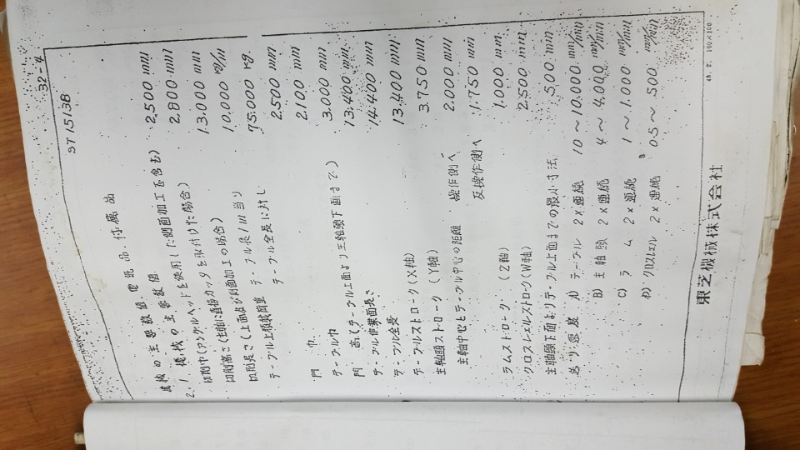 32-4
ST 1513B
機械の主要数値、電気品、付属品
2. 1. 機械の主要数値
切削巾(アングルヘッドを使用した側面加工を含む) 2,500 mm
切削高さ(主軸に直接カッタを取付けた場合) 2,800 mm
切削長さ(上面及び側面加工の場合) 13,000 mm
テーブル上積載質量 テーブル長1m当り 10,000 kg/m
テーブル全長に対し 75,000 kg
門 巾 2,500 mm
テーブル巾 2,100 mm
門 高(テーブル上面より主軸頭下面まで) 3,000 mm
テーブル作業面長さ 13,400 mm
テーブル全長 14,400 mm
テーブルストローク(X軸) 13,400 mm
主軸頭ストローク (Y軸) 3,750 mm
主軸中心とテーブル中心の距離 操作側へ 2,000 mm
反操作側へ 1,750 mm
ラムストローク (Z軸) 1,000 mm
クロスレールストローク(W軸) 2,500 mm
主軸頭下面よりテーブル上面までの最小寸法 500 mm
送り速度 A) テーブル 2×連続 10～10,000 mm/min
B) 主軸頭 2×連続 4～4,000 mm/min
C) ラム 2×連続 1～1,000 mm/min
D) クロスレール 2×連続 0.5～500 mm/min
東芝機械株式会社